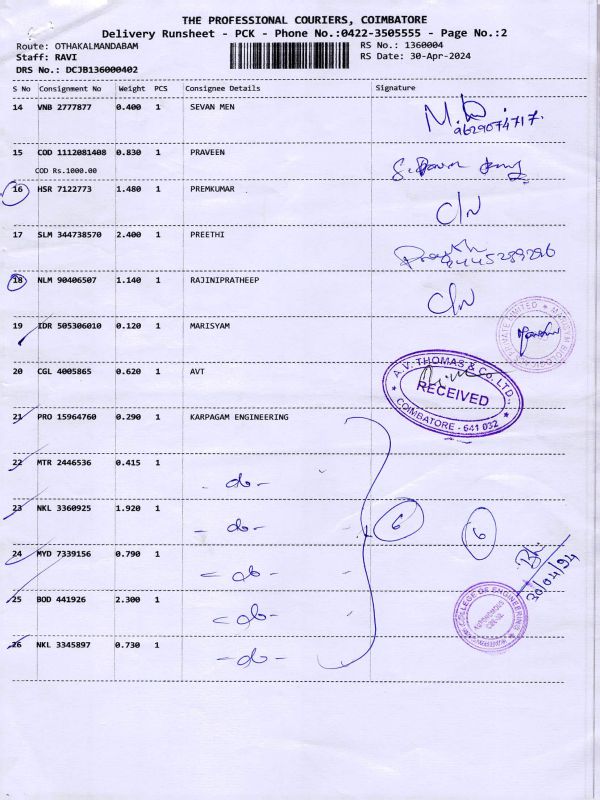 THE PROFESSIONAL COURIERS, COIMBATORE
Delivery Runsheet - PCK - Phone No.:0422-3505555 - Page No.:2
Route: OTHAKALMANDABAM RS No.: 1360004
Staff: RAVI RS Date: 30-Apr-2024
DRS No.: DCJB136000402
S No Consignment No Weight PCS Consignee Details Signature
14 VNB 2777877 0.400 1 SEVAN MEN
9629074717.
15 COD 1112081408 0.830 1 PRAVEEN
COD Rs.1000.00
16 HSR 7122773 1.480 1 PREMKUMAR C/N
17 SLM 344738570 2.400 1 PREETHI
18 NLM 90406507 1.140 1 RAJINIPRATHEEP C/N
19 IDR 505306010 0.120 1 MARISYAM
20 CGL 4005865 0.620 1 AVT
A.V. THOMAS & CO. LTD.,
RECEIVED
COIMBATORE - 641 032
21 PRO 15964760 0.290 1 KARPAGAM ENGINEERING
22 MTR 2446536 0.415 1 - do -
23 NKL 3360925 1.920 1 - do - 6 6
24 MYD 7339156 0.790 1 - do -
30/04/24
25 BOD 441926 2.300 1 - do -
COLLEGE OF ENGINEERING
26 NKL 3345897 0.730 1 - do -